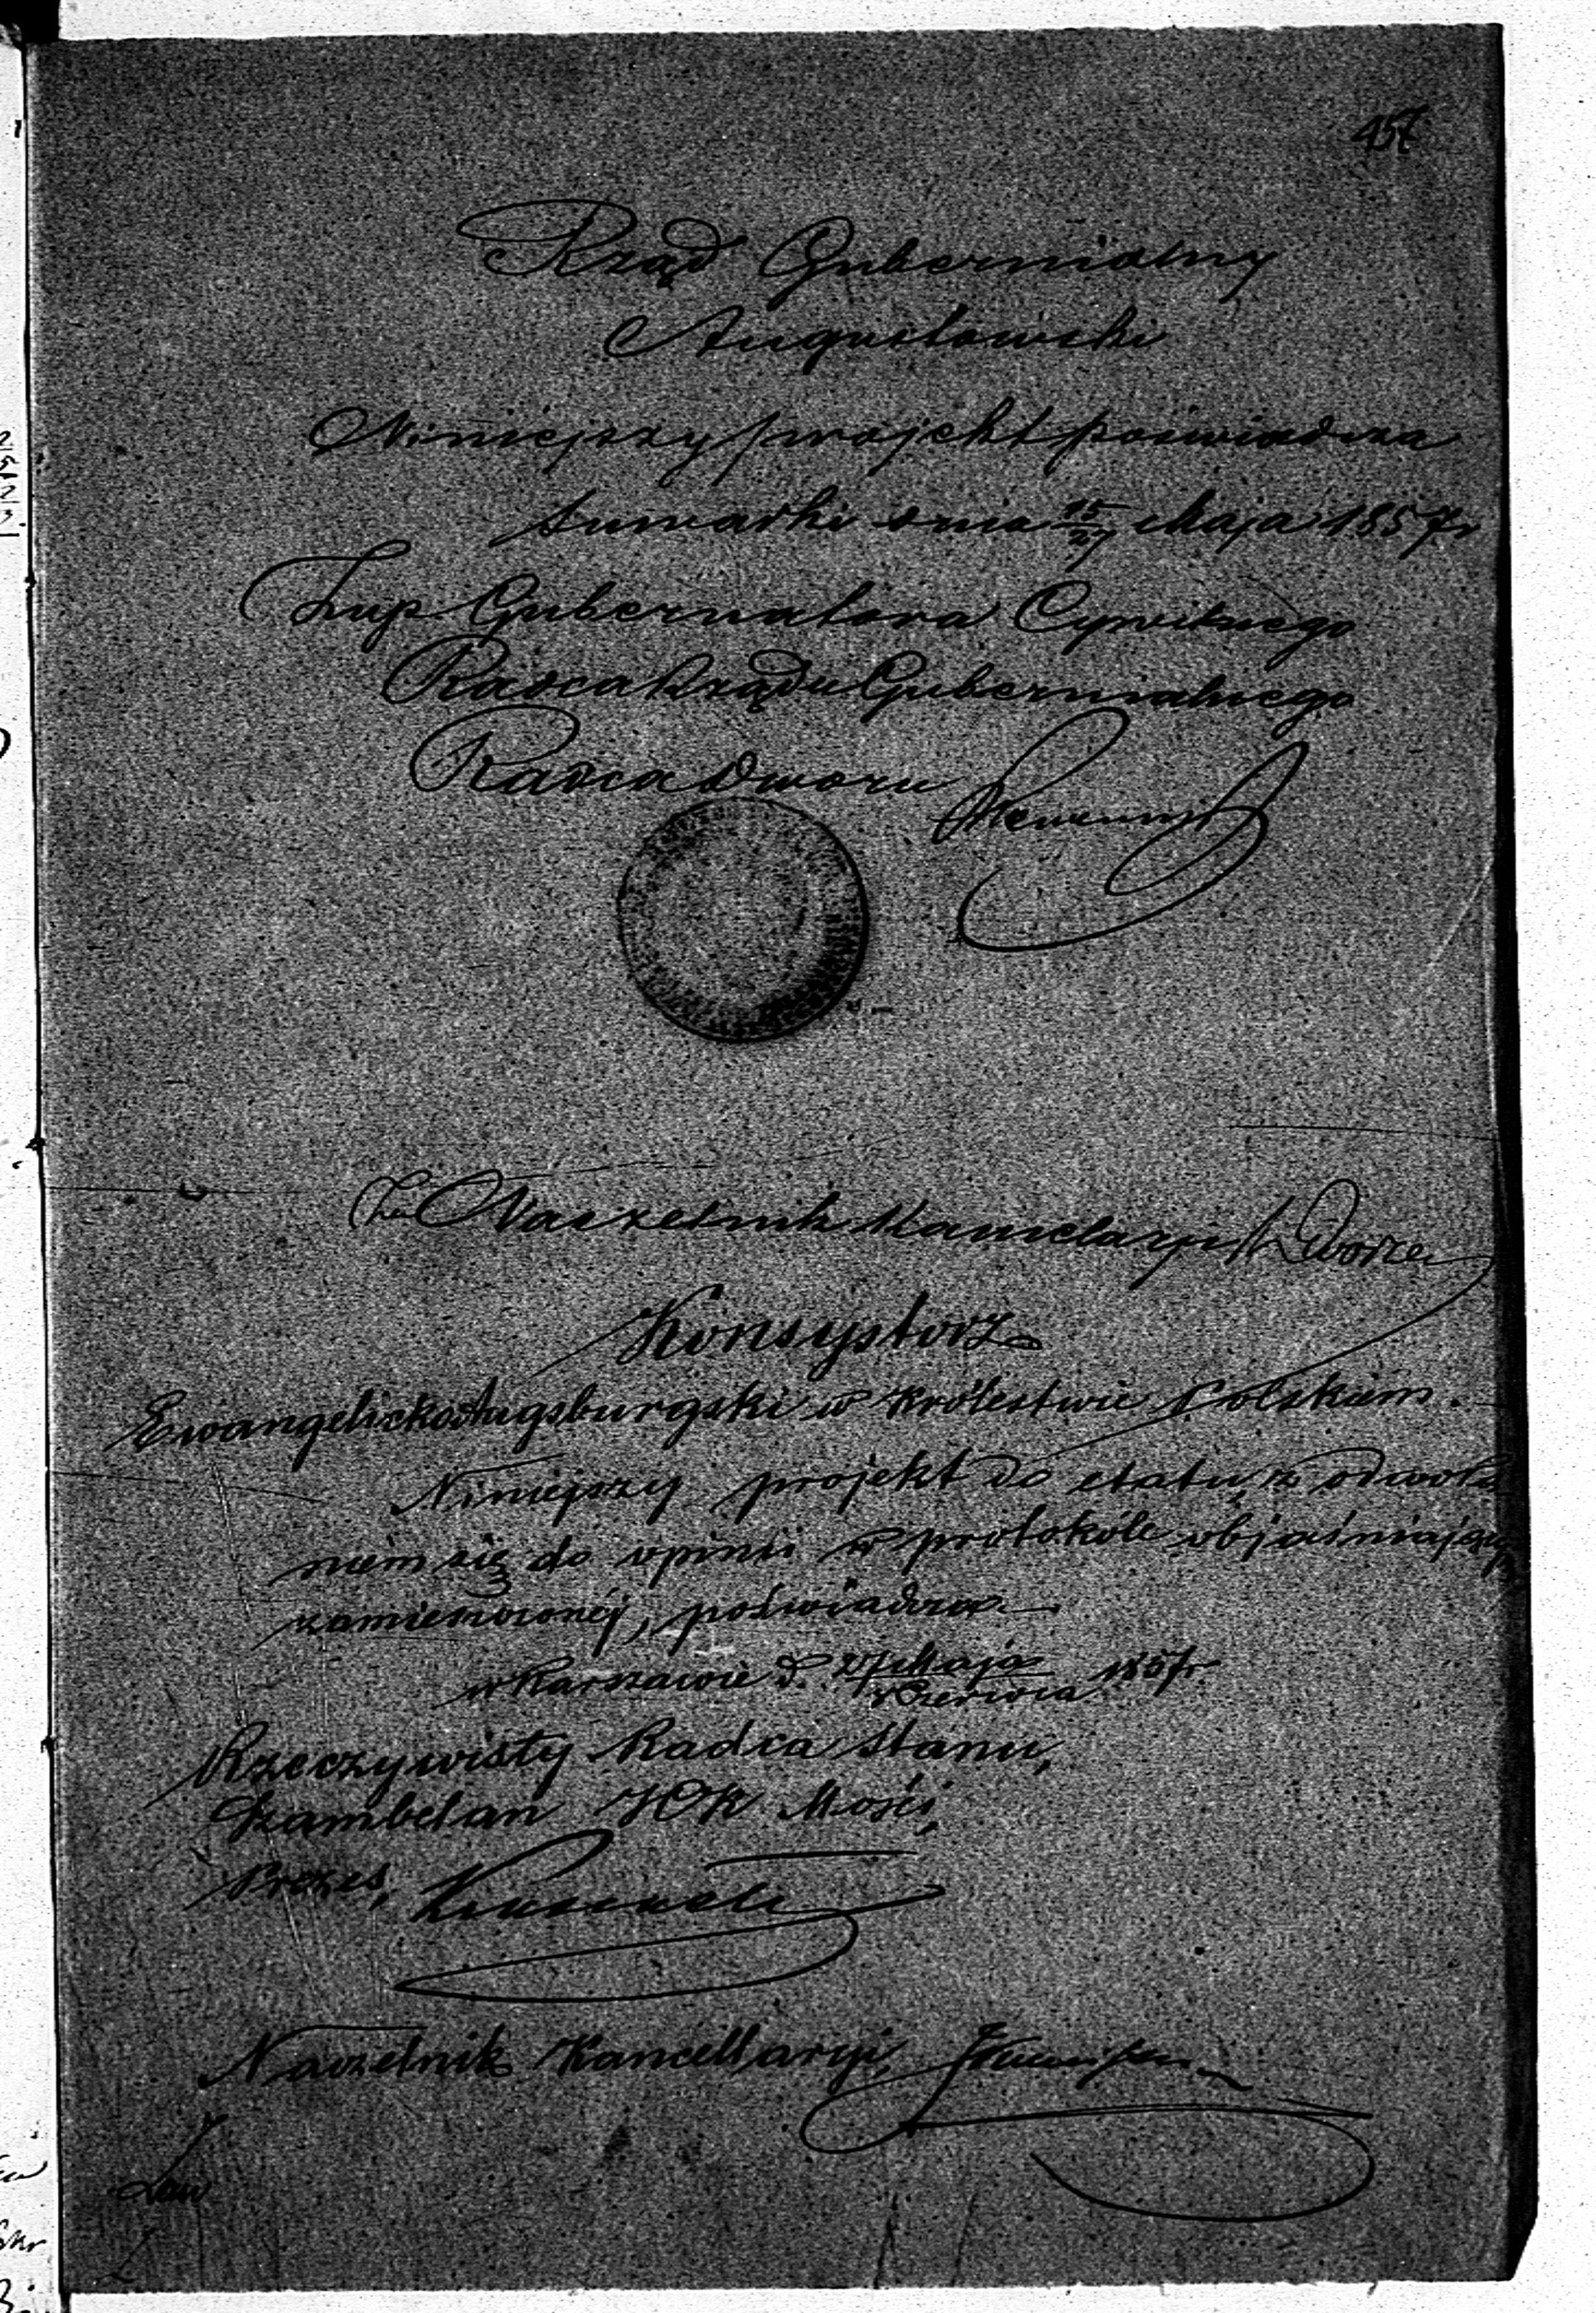 457
Rząd Gubernialny
Augustowski
Niniejszy projekt poświadcza
Suwałki dnia 15/27 Maja 1857 r
Zup. Gubernatora Cywilnego
Radca Rządu Gubernialnego
Radca Dworu
Za Naczelnik Kancelaryi
Konsystorz
Ewangelicko Augsburgski w Królestwie Polskiem.
Niniejszy projekt do etatu, z odwoła
niem się do opinii w protokóle objaśniającym
zamieszczonej, poświadcza
w Warszawie d. Maja/Czerwca 1857 r
Rzeczywisty Radca Stanu,
Szambelan JCK Mości,
Prezes,
Naczelnik Kancellaryi,